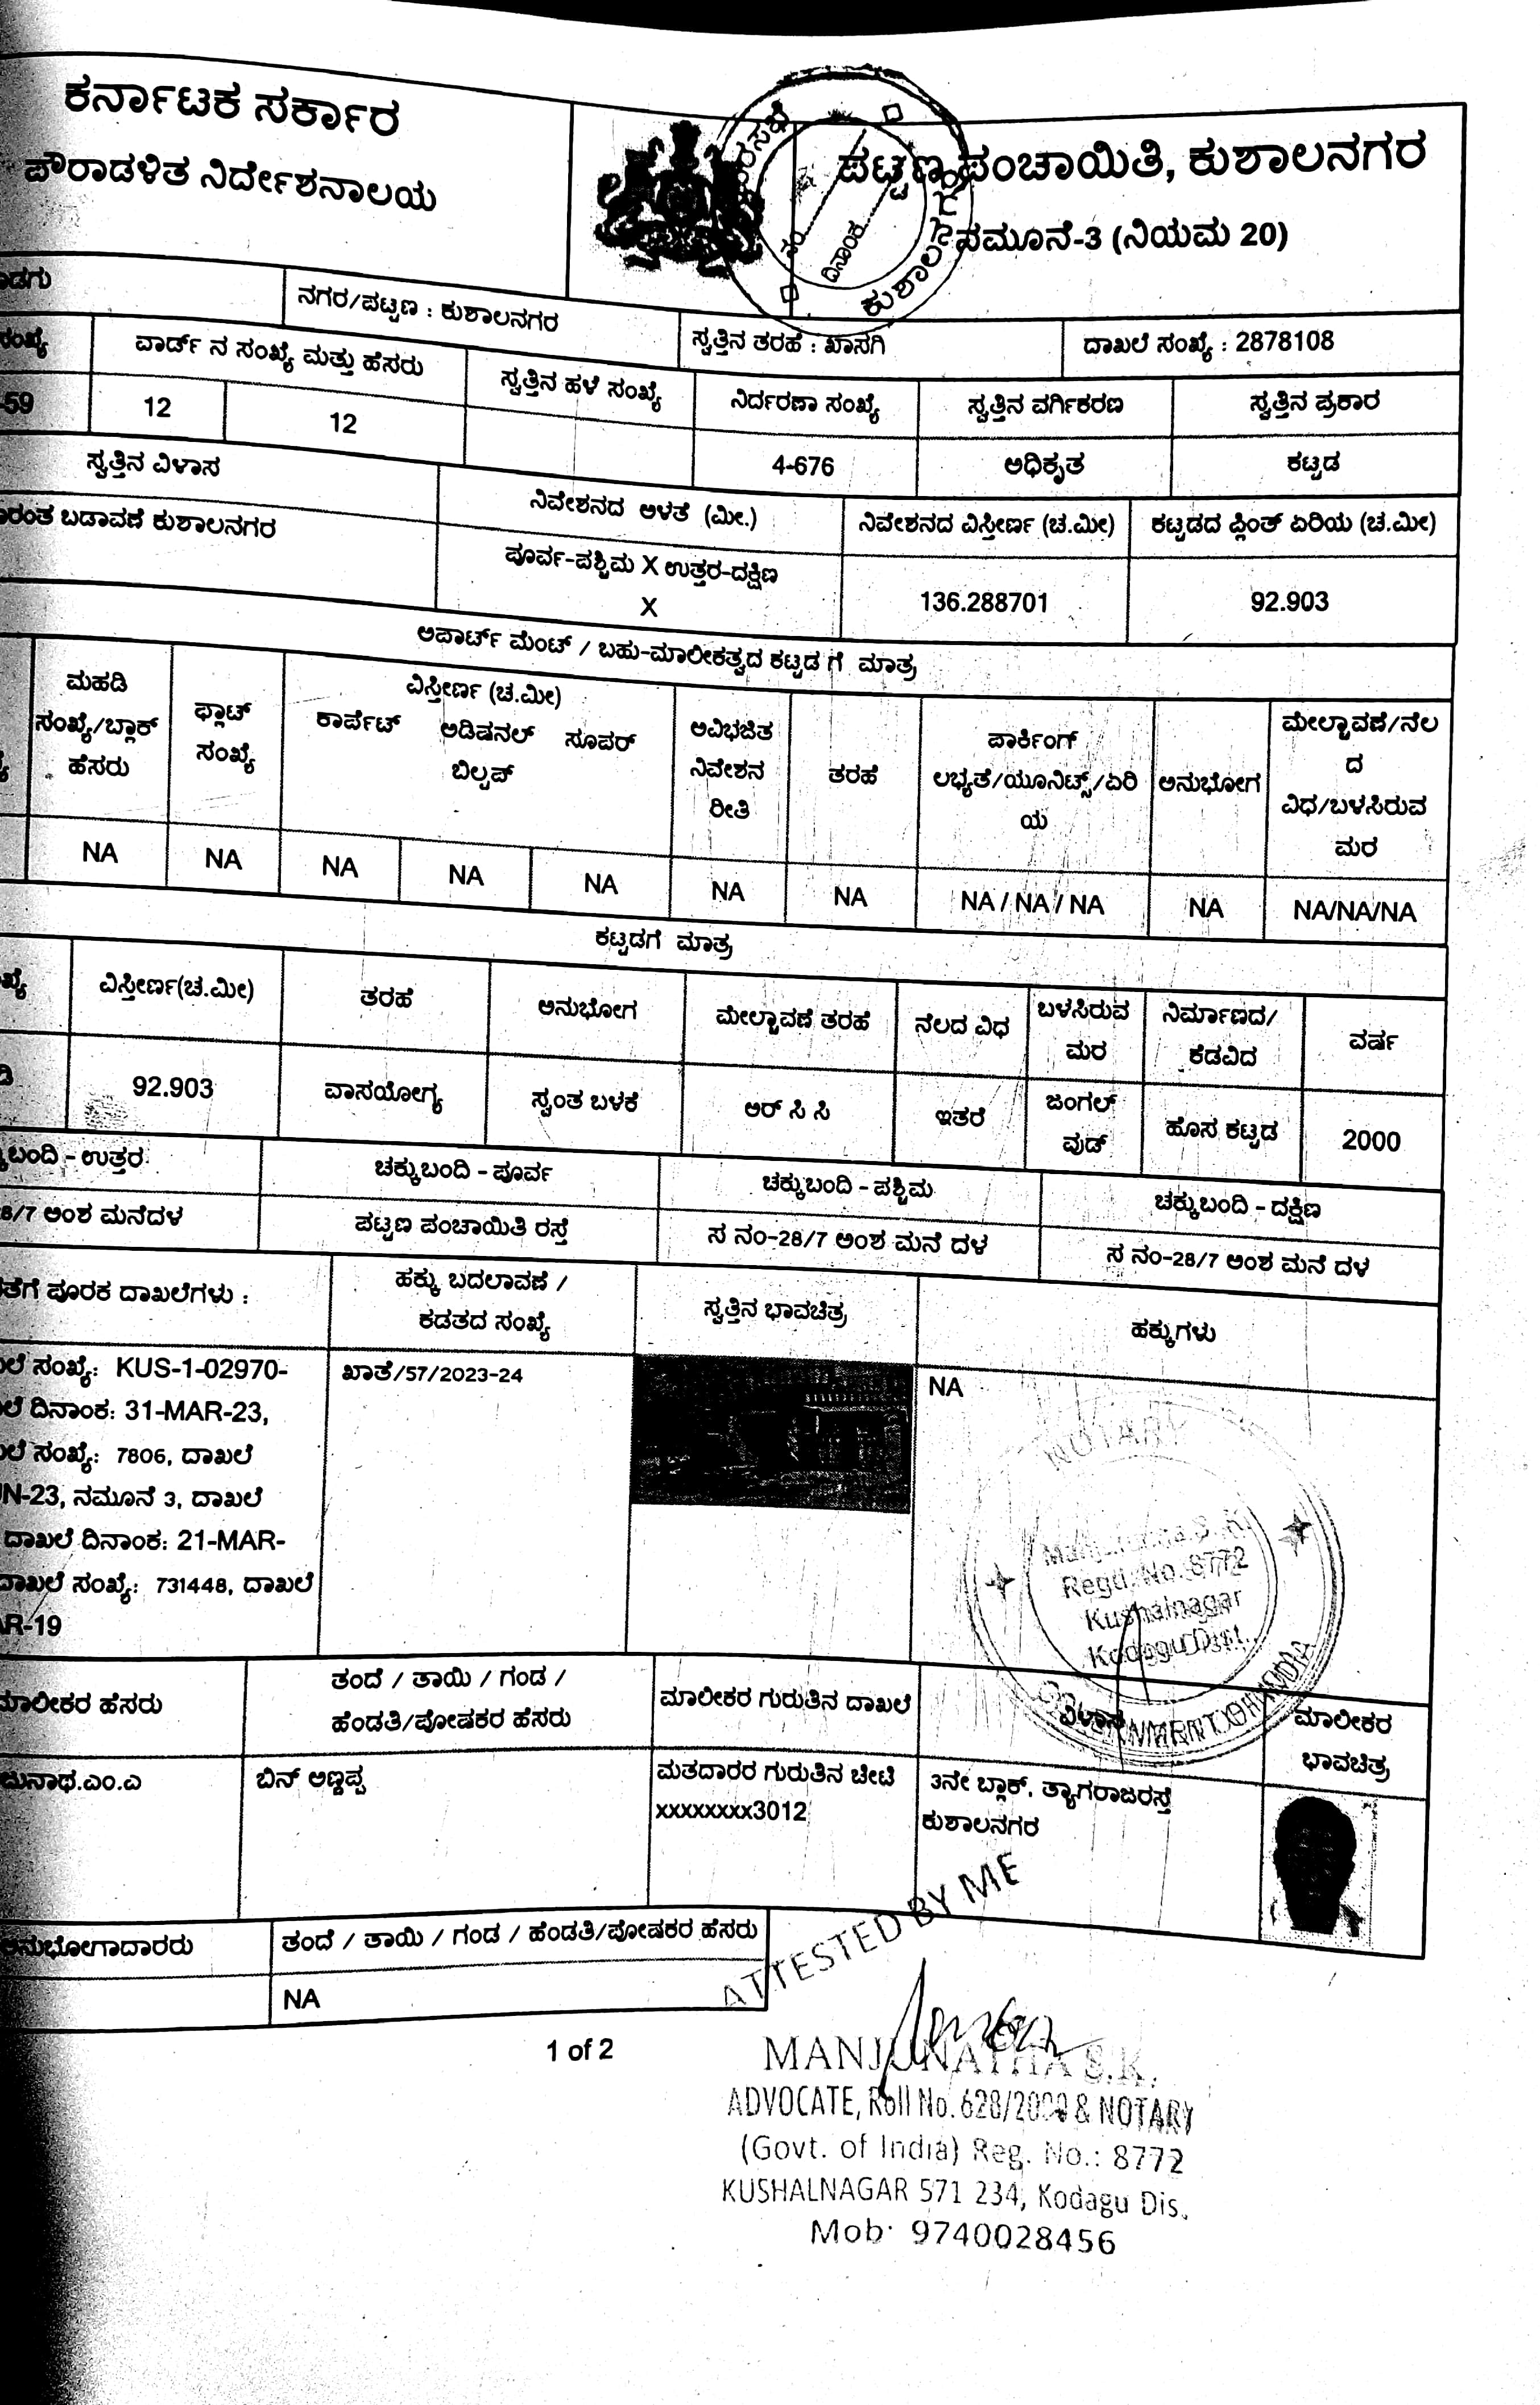 ಕರ್ನಾಟಕ ಸರ್ಕಾರ
ಪೌರಾಡಳಿತ ನಿರ್ದೇಶನಾಲಯ
ಪಟ್ಟಣ ಪಂಚಾಯಿತಿ, ಕುಶಾಲನಗರ
ನಮೂನೆ-3 (ನಿಯಮ 20)
ನಂ
ದಿನಾಂಕ
ಕುಶಾಲನಗರ
ನಗರ/ಪಟ್ಟಣ : ಕುಶಾಲನಗರ
ಸ್ವತ್ತಿನ ತರಹೆ : ಖಾಸಗಿ
ದಾಖಲೆ ಸಂಖ್ಯೆ : 2878108
ವಾರ್ಡ್ ನ ಸಂಖ್ಯೆ ಮತ್ತು ಹೆಸರು
ಸ್ವತ್ತಿನ ಹಳೆ ಸಂಖ್ಯೆ
ನಿರ್ದರಣಾ ಸಂಖ್ಯೆ
ಸ್ವತ್ತಿನ ವರ್ಗಿಕರಣ
ಸ್ವತ್ತಿನ ಪ್ರಕಾರ
-59
12
12
4-676
ಅಧಿಕೃತ
ಕಟ್ಟಡ
ಸ್ವತ್ತಿನ ವಿಳಾಸ
ನಿವೇಶನದ ಅಳತೆ (ಮೀ.)
ನಿವೇಶನದ ವಿಸ್ತೀರ್ಣ (ಚ.ಮೀ)
ಕಟ್ಟಡದ ಪ್ಲಿಂತ್ ಏರಿಯ (ಚ.ಮೀ)
ಬಡಾವಣೆ ಕುಶಾಲನಗರ
ಪೂರ್ವ-ಪಶ್ಚಿಮ X ಉತ್ತರ-ದಕ್ಷಿಣ
X
136.288701
92.903
ಅಪಾರ್ಟ್ ಮೆಂಟ್ / ಬಹು-ಮಾಲೀಕತ್ವದ ಕಟ್ಟಡ ಗೆ ಮಾತ್ರ
ಮಹಡಿ
ಸಂಖ್ಯೆ/ಬ್ಲಾಕ್
ಹೆಸರು
ಫ್ಲಾಟ್
ಸಂಖ್ಯೆ
ವಿಸ್ತೀರ್ಣ (ಚ.ಮೀ)
ಕಾರ್ಪೆಟ್ ಅಡಿಷನಲ್ ಸೂಪರ್
ಬಿಲ್ಪಪ್
ಅವಿಭಜಿತ
ನಿವೇಶನ
ರೀತಿ
ತರಹೆ
ಪಾರ್ಕಿಂಗ್
ಲಭ್ಯತೆ/ಯೂನಿಟ್ಸ್/ಏರಿ
ಯ
ಅನುಭೋಗ
ಮೇಲ್ಚಾವಣೆ/ನೆಲ
ದ
ವಿಧ/ಬಳಸಿರುವ
ಮರ
NA
NA
NA
NA
NA
NA
NA
NA / NA / NA
NA
NA/NA/NA
ಕಟ್ಟಡಗೆ ಮಾತ್ರ
ವಿಸ್ತೀರ್ಣ(ಚ.ಮೀ)
ತರಹೆ
ಅನುಭೋಗ
ಮೇಲ್ಚಾವಣೆ ತರಹೆ
ನೆಲದ ವಿಧ
ಬಳಸಿರುವ
ಮರ
ನಿರ್ಮಾಣದ/
ಕೆಡವಿದ
ವರ್ಷ
92.903
ವಾಸಯೋಗ್ಯ
ಸ್ವಂತ ಬಳಕೆ
ಆರ್ ಸಿ ಸಿ
ಇತರೆ
ಜಂಗಲ್
ವುಡ್
ಹೊಸ ಕಟ್ಟಡ
2000
ಬಂದಿ - ಉತ್ತರ
ಚಕ್ಕುಬಂದಿ - ಪೂರ್ವ
ಚಕ್ಕುಬಂದಿ - ಪಶ್ಚಿಮ
ಚಕ್ಕುಬಂದಿ - ದಕ್ಷಿಣ
8/7 ಅಂಶ ಮನೆದಳ
ಪಟ್ಟಣ ಪಂಚಾಯಿತಿ ರಸ್ತೆ
ಸ ನಂ-28/7 ಅಂಶ ಮನೆ ದಳ
ಸ ನಂ-28/7 ಅಂಶ ಮನೆ ದಳ
ಪೂರಕ ದಾಖಲೆಗಳು :
ಹಕ್ಕು ಬದಲಾವಣೆ /
ಕಡತದ ಸಂಖ್ಯೆ
ಸ್ವತ್ತಿನ ಭಾವಚಿತ್ರ
ಹಕ್ಕುಗಳು
ಸಂಖ್ಯೆ: KUS-1-02970-
ದಿನಾಂಕ: 31-MAR-23,
ಸಂಖ್ಯೆ: 7806, ದಾಖಲೆ
N-23, ನಮೂನೆ 3, ದಾಖಲೆ
ದಾಖಲೆ ದಿನಾಂಕ: 21-MAR-
ದಾಖಲೆ ಸಂಖ್ಯೆ: 731448, ದಾಖಲೆ
AR-19
ಖಾತೆ/57/2023-24
NA
NOTARY
Regd. No. 8772
Kushalnagar
Kodagu Dist.
ಮಾಲೀಕರ ಹೆಸರು
ತಂದೆ / ತಾಯಿ / ಗಂಡ /
ಹೆಂಡತಿ/ಪೋಷಕರ ಹೆಸರು
ಮಾಲೀಕರ ಗುರುತಿನ ದಾಖಲೆ
ವಿಳಾಸ
ಮಾಲೀಕರ
ಭಾವಚಿತ್ರ
ಜುನಾಥ.ಎಂ.ಎ
ಬಿನ್ ಅಣ್ಣಪ್ಪ
ಮತದಾರರ ಗುರುತಿನ ಚೀಟಿ
xxxxxxxx3012
3ನೇ ಬ್ಲಾಕ್, ತ್ಯಾಗರಾಜರಸ್ತೆ
ಕುಶಾಲನಗರ
ಅನುಭೋಗಾದಾರರು
ತಂದೆ / ತಾಯಿ / ಗಂಡ / ಹೆಂಡತಿ/ಪೋಷಕರ ಹೆಸರು
NA
ATTESTED BY ME
1 of 2
MANJUNATHA S.K.
ADVOCATE, Roll No. 628/2000 & NOTARY
(Govt. of India) Reg. No.: 8772
KUSHALNAGAR 571 234, Kodagu Dis.
Mob: 9740028456